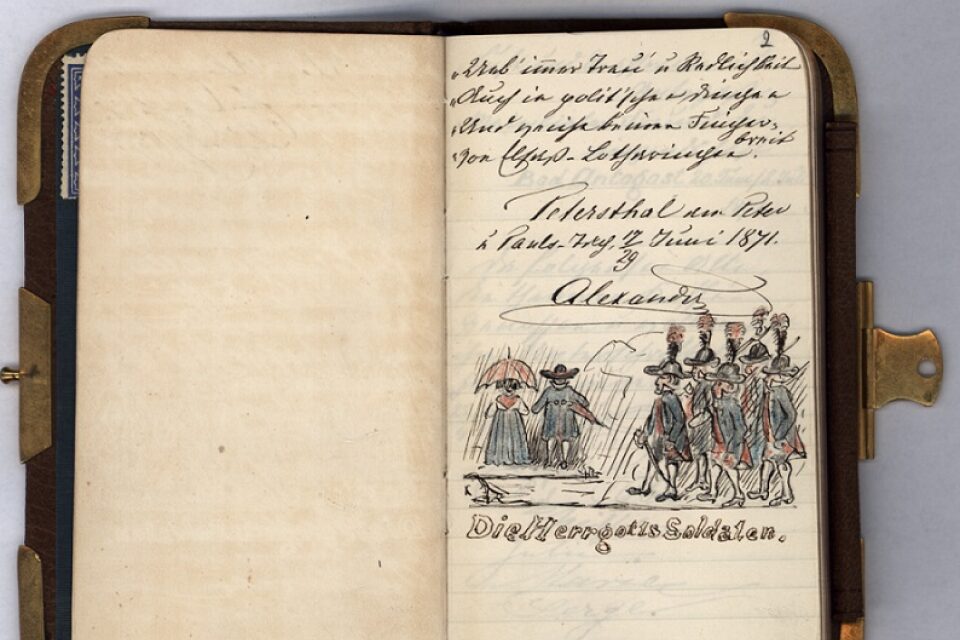 2
„Ueb' immer Treu' u Redlichkeit
„Auch in polit'schen Dingen
„Und weiche keinen Finger-
breit
„Von Elsaß-Lotharingen.
Petersthal am Peter
u Pauls-Tag, 17/29 Juni 1871.
Alexander
Die Herrgotts Soldaten.